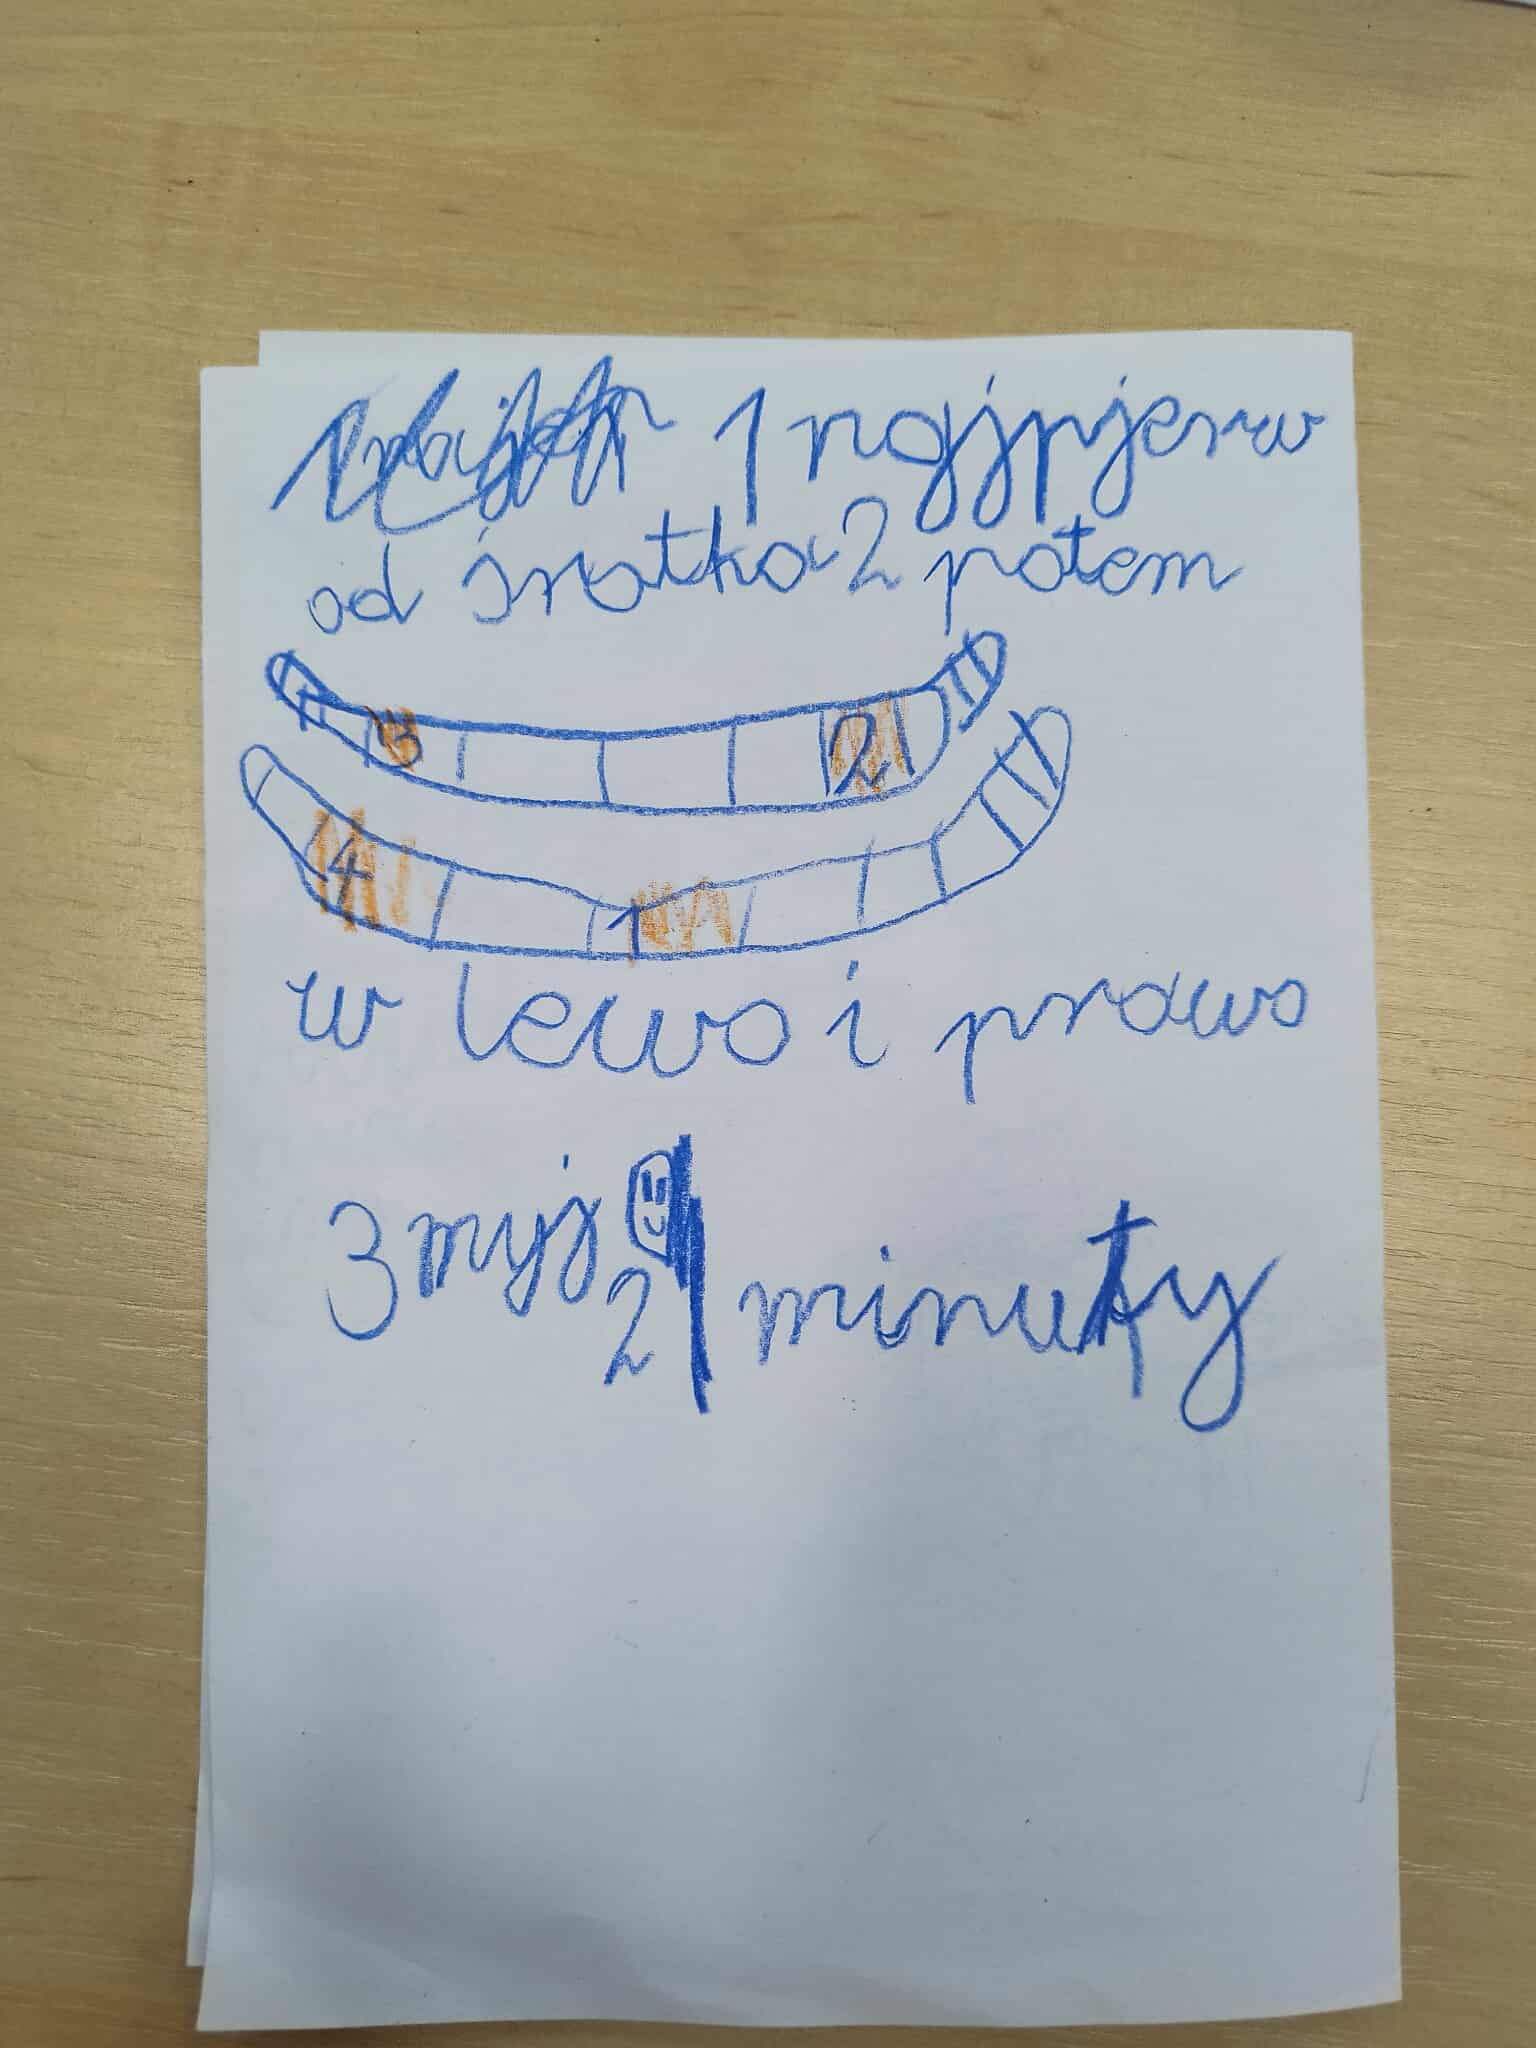 1 najpjerw
od środka 2 potem
3 2
4 1
w lewo i prawo
3 myj 2 minuty